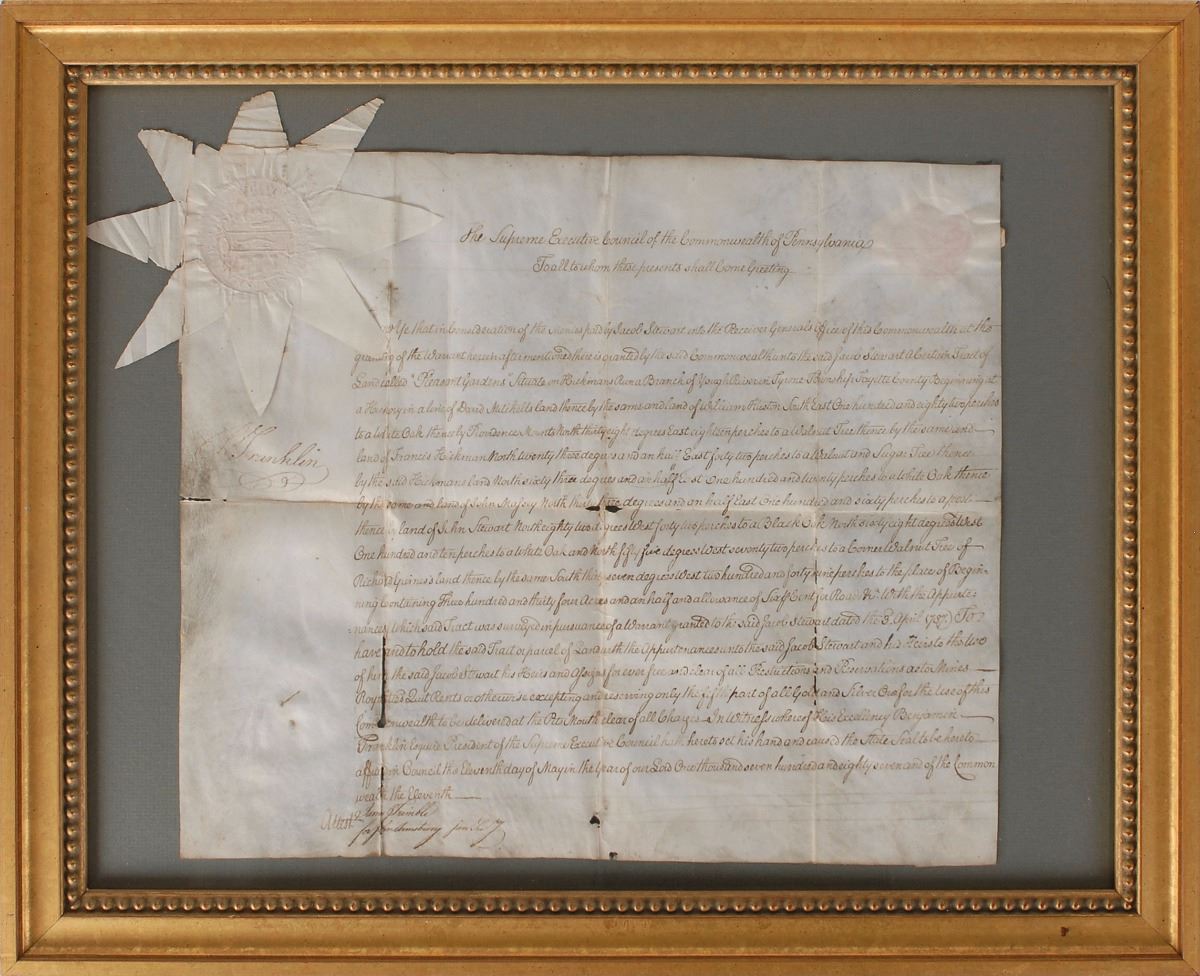 The Supreme Executive Council of the Commonwealth of Pennsylvania
To all to whom these presents shall Come Greeting
Ye that in Consideration of the Monies paid by Jacob Stewart into the Receiver Generals Office of this Commonwealth at the
granting of the Warrant herein after mentioned there is granted by the said Commonwealth unto the said Jacob Stewart A Certain Tract of
Land called "Pleasant Gardens" Situate on Hickmans Run a Branch of Yough River in Tyrone Township Fayette County Beginning at
a Hickory in a line of David Mitchells land thence by the same and land of William Huston South East One hundred and eighty two perches
to a White Oak thence by Providence Mounts North thirty eight degrees East eighteen perches to a Walnut Tree thence by the same and
land of Francis Hickman North twenty three degrees and an half East forty two perches to a Walnut and Sugar Tree thence
by the said Hickmans land North sixty three degrees and an half East One hundred and twenty perches to a White Oak thence
by the same and land of John Massey North thirty three degrees and an half East One hundred and sixty perches to a post
thence by land of John Stewart North eighty two degrees West forty two perches to a Black Oak North sixty eight degrees West
One hundred and ten perches to a White Oak and North fifty five degrees West seventy two perches to a Corner Walnut Tree of
Richard land thence by the same South thirty seven degrees West two hundred and forty nine perches to the place of Begin-
ning Containing Three hundred and thirty four Acres and an half and allowance of Six P Cent for Roads &c. With the Appurte=
=nances (which said Tract was surveyed in pursuance of a Warrant granted to the said Jacob Stewart dated the 3 April 1787) To
have and to hold the said Tract or parcel of Land with the Appurtenances unto the said Jacob Stewart and his Heirs to the use
of him the said Jacob Stewart his Heirs and Assigns for ever free and clear of all Restrictions and Reservations as to Mines
Royalties Quit Rents or otherwise excepting and reserving only the fifth part of all Gold and Silver Ore for the use of this
Commonwealth to be delivered at the Pits Mouth clear of all Charges In Witness whereof His Excellency Benjamin
Franklin Esquire President of the Supreme Executive Council hath hereto set his hand and caused the State Seal to be hereto
affixed in Council the Eleventh day of May in the Year of our Lord One thousand seven hundred and eighty seven and of the Common
wealth the Eleventh
Franklin
Attest
James Trimble
for John Armstrong jun Secy